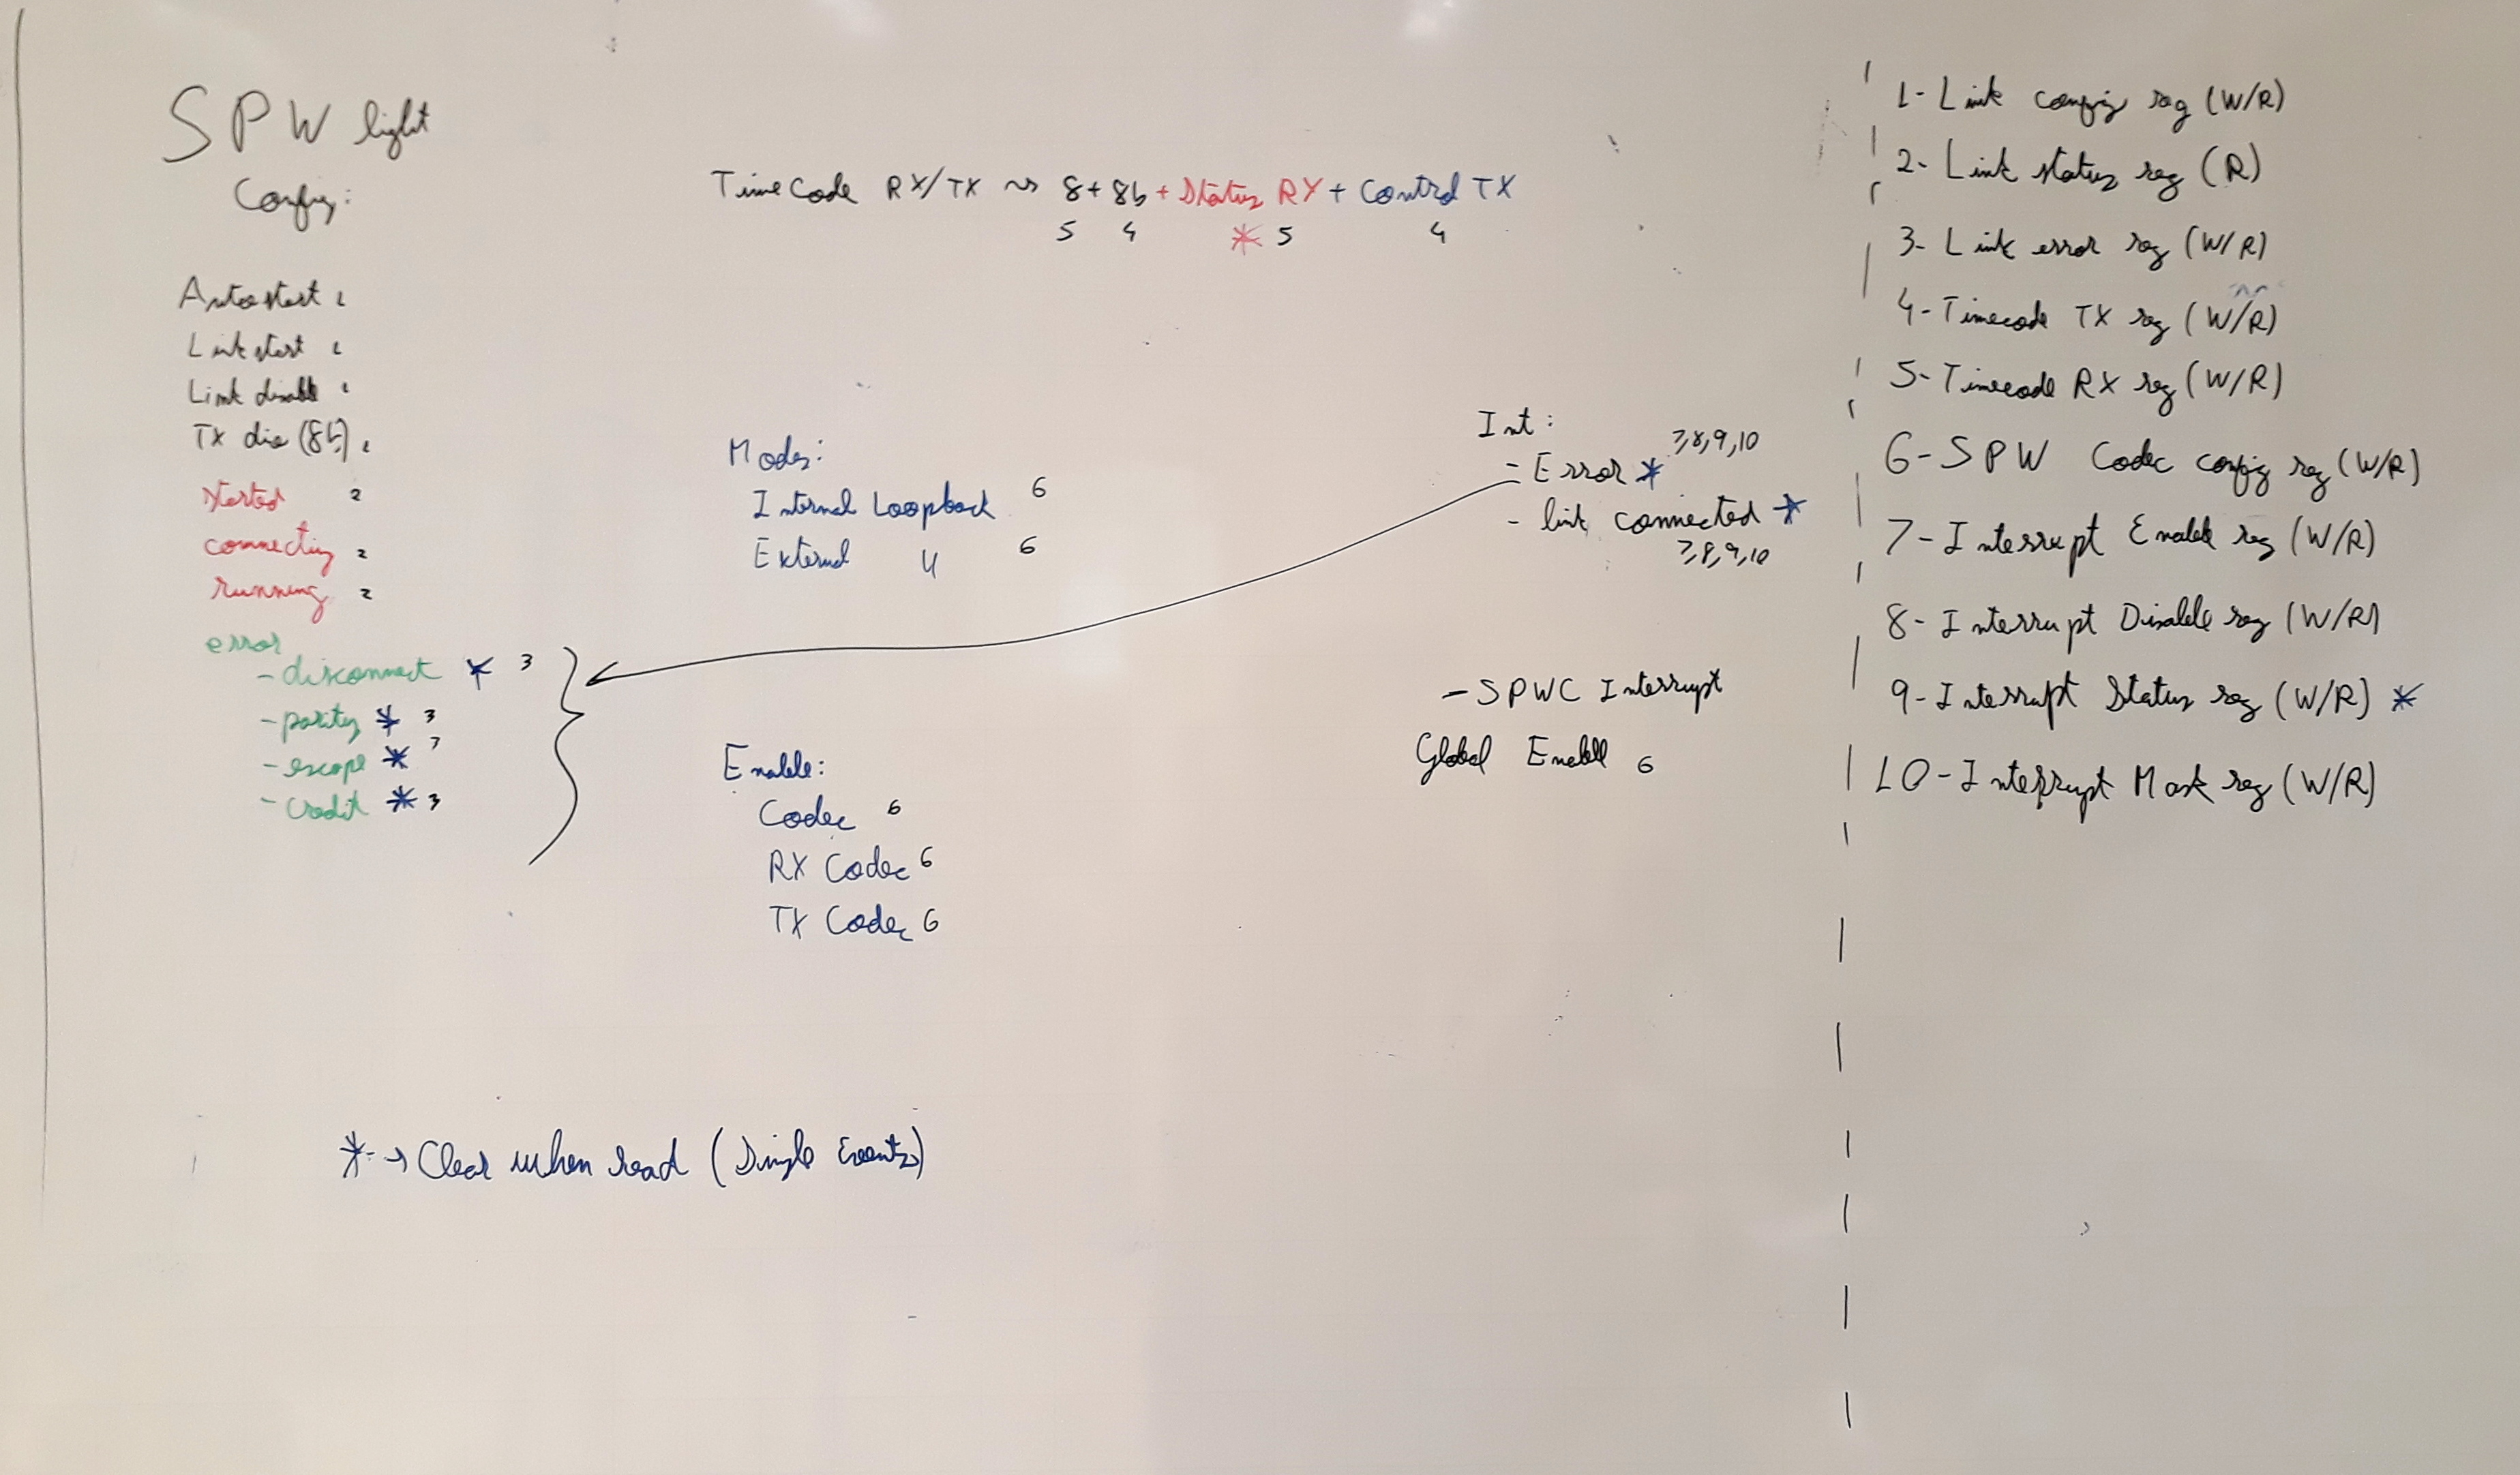 SPW light
Config:
Autostart 1
Linkstart 1
Link disable 1
TX div (8b) 1
started 2
connecting 2
running 2
error
- disconnect * 3
- parity * 3
- escape * 3
- credit * 3
TimeCode RX/TX ~> 8 + 8b + Status RX + Control TX
5 4 * 5 4
Modes:
Internal Loopback 6
External 〃 6
Enable:
Codec 6
RX Codec 6
TX Codec 6
Int:
- Error * 7,8,9,10
- link connected *
7,8,9,10
- SPWC Interrupt
Global Enable 6
* -> Clear when read (Single Events)
1- Link config reg (W/R)
2- Link status reg (R)
3- Link error reg (W/R)
4- Timecode TX reg (W/R)
5- Timecode RX reg (W/R)
6- SPW Codec config reg (W/R)
7- Interrupt Enable reg (W/R)
8- Interrupt Disable reg (W/R)
9- Interrupt Status reg (W/R) *
10- Interrupt Mask reg (W/R)